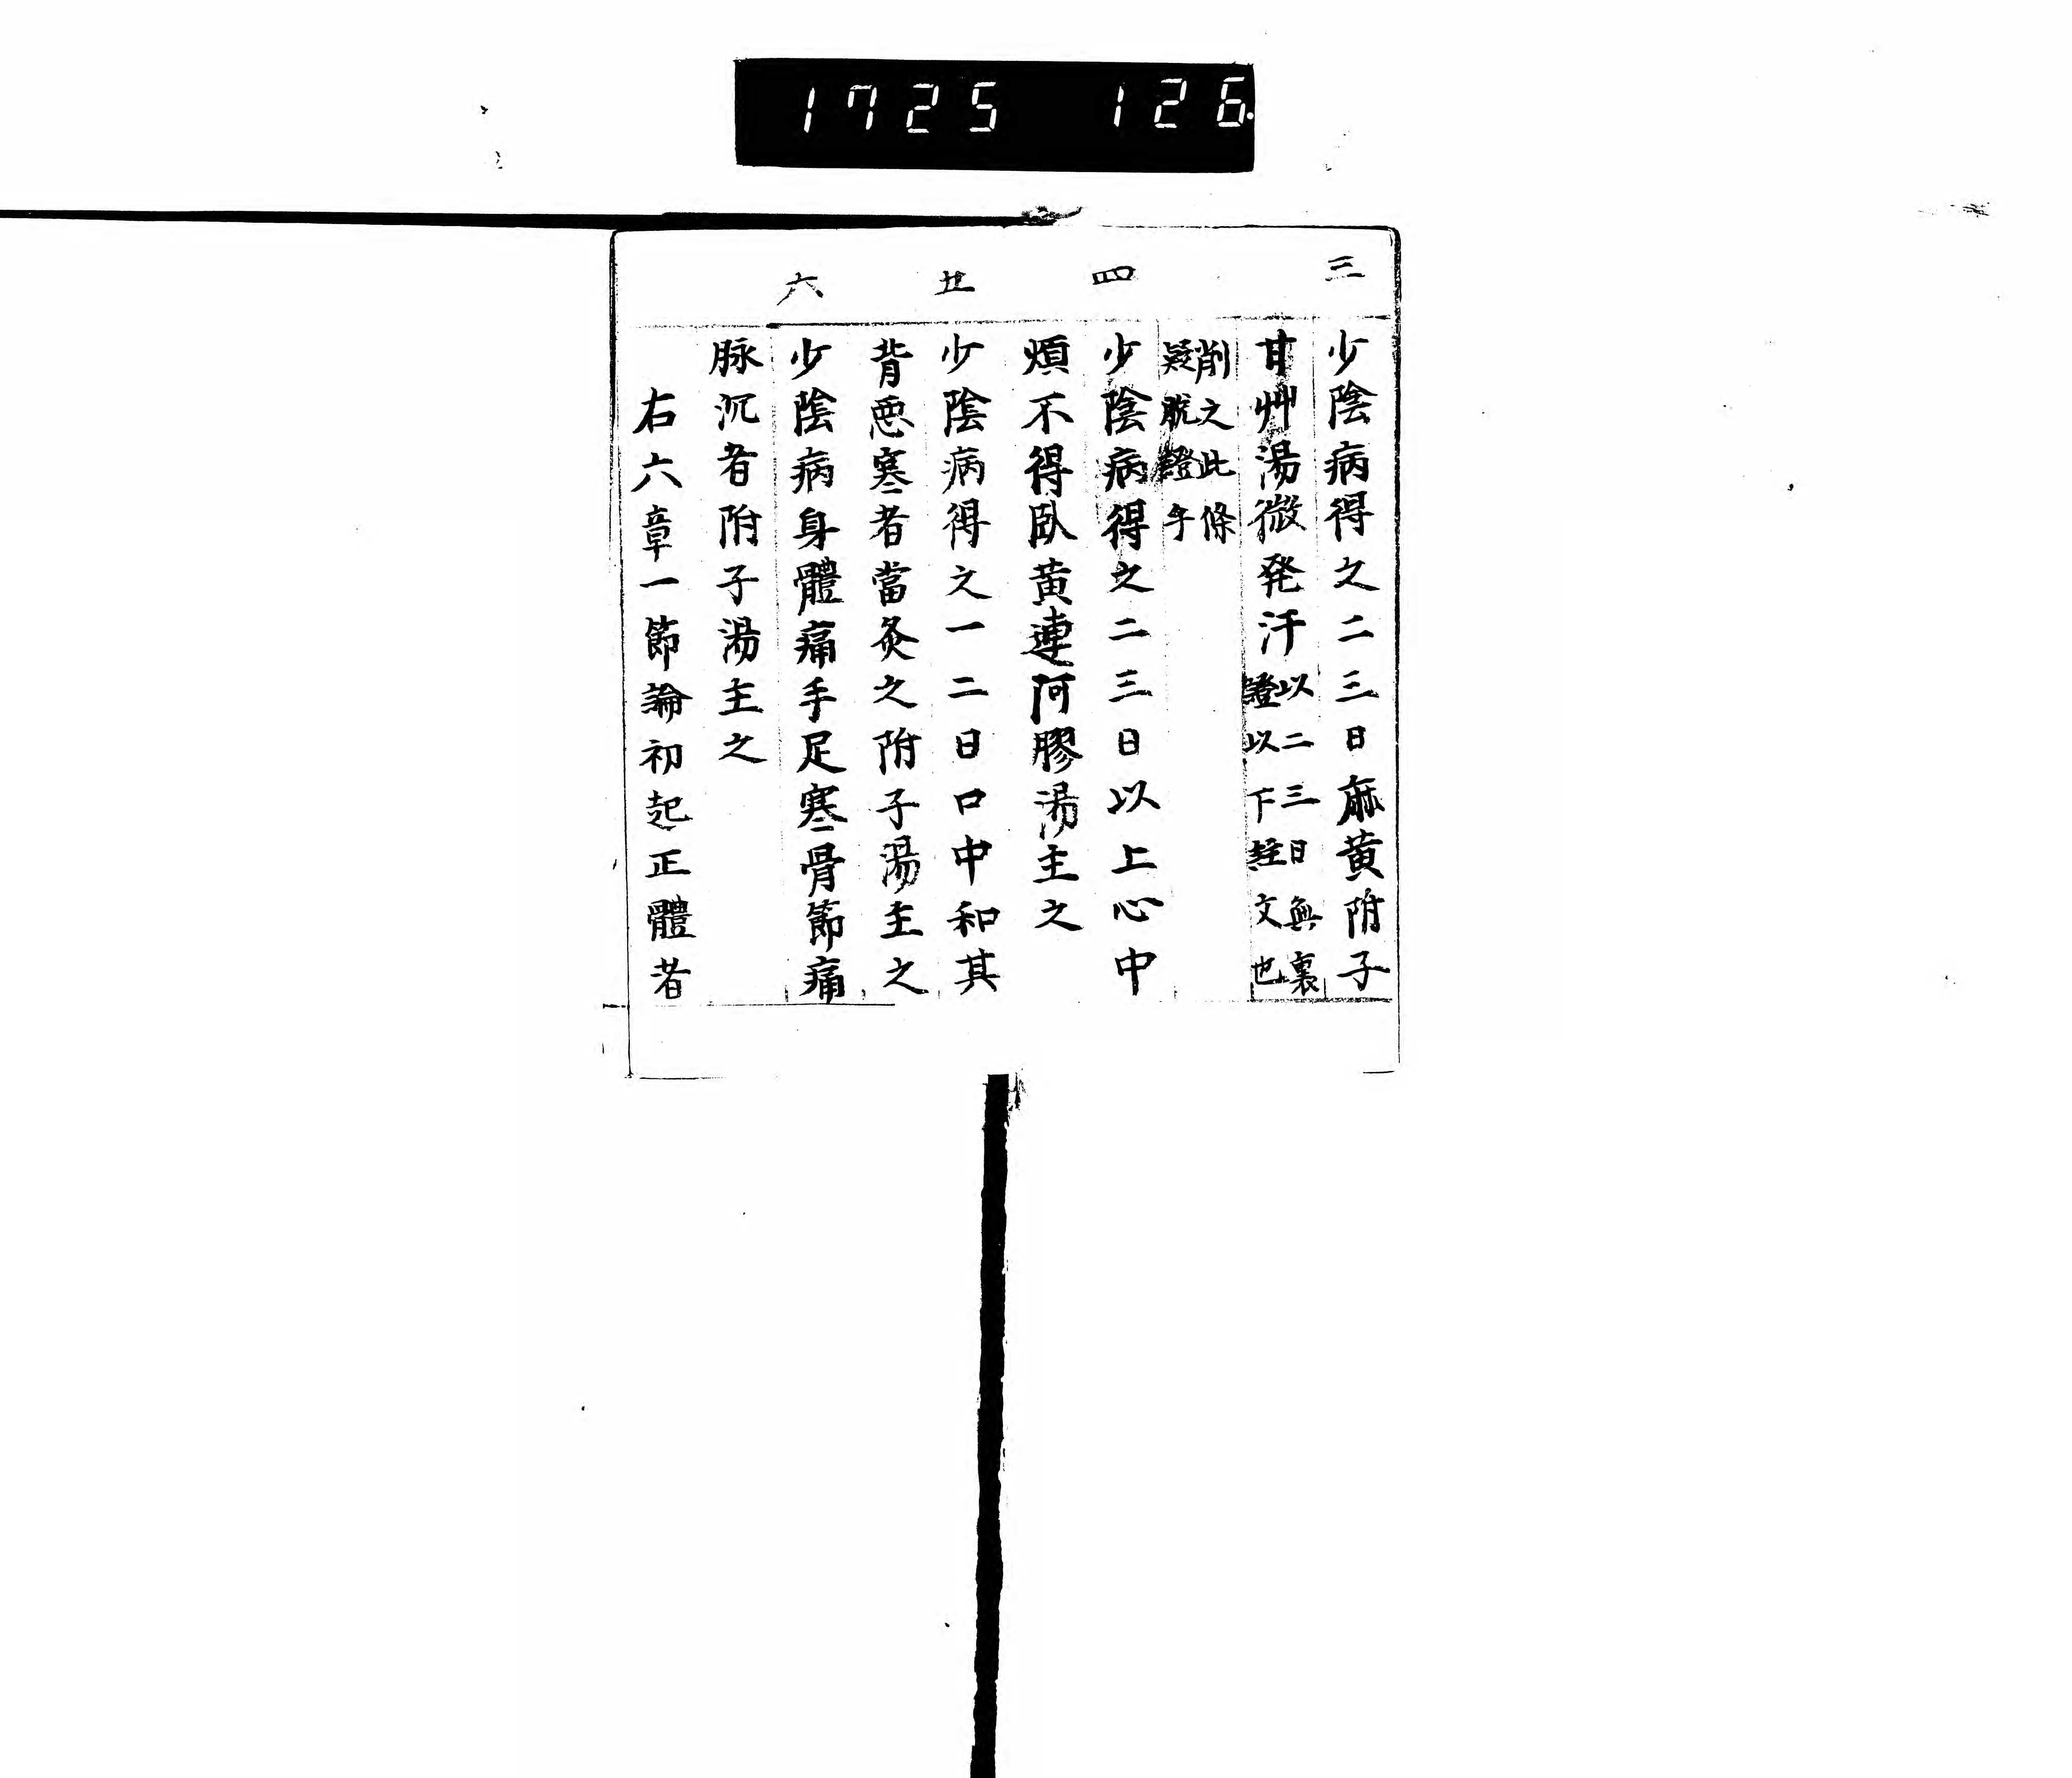 1725 126
三
少陰病得之二三日麻黄附子
甘艸湯微発汗以二三日無裏
證以下註文也
削之此條
疑脱證乎
四
少陰病得之二三日以上心中
煩不得臥黄連阿膠湯主之
五
少陰病得之一二日口中和其
背悪寒者當灸之附子湯主之
六
少陰病身體痛手足寒骨節痛
脉沉者附子湯主之
右六章一節論初起正體者